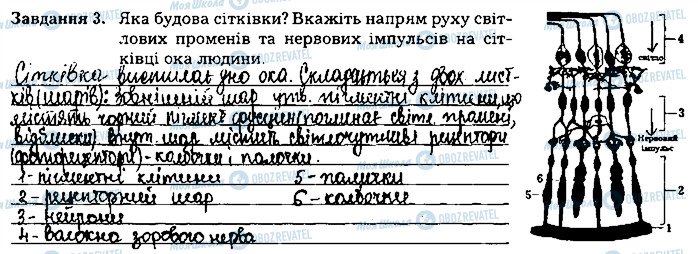 Завдання 3. Яка будова сітківки? Вкажіть напрям руху світ-
лових променів та нервових імпульсів на сіт-
ківці ока людини.
Сітківка вистилає дно ока. Складається з двох лист-
ків (шарів): зовнішній шар утв. пігментні клітини, що
містять чорний пігмент фусцин (поглинає світл. промені,
відблиски) внут. шар містить світлочутливі рецептори
(фоторецептори) - колбочки і палочки.
1 - пігментні клітини 5 - палички
2 - рецепторний шар 6 - колбочки
3 - нейрони
4 - волокна зорового нерва
4
світло
3
Нервовий
імпульс
6
5
2
1